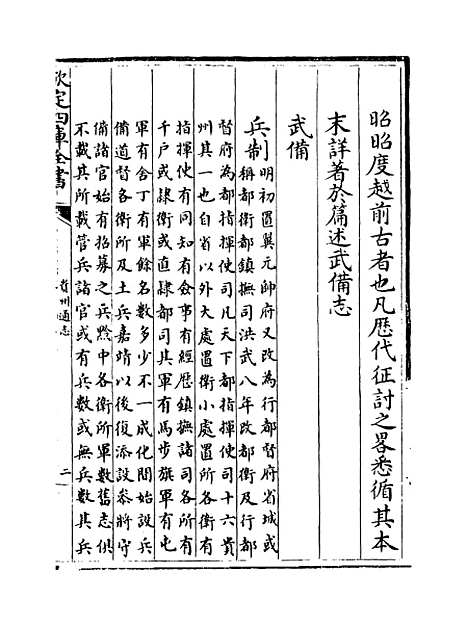 昭昭度越前古者也凡歷代征討之畧悉循其本
末詳著於篇述武備志
武備
兵制明初置翼元帥府又改為行都督府省城或
稱都衛都鎮撫司洪武八年改都衛及行都
督府為都指揮使司凡天下都指揮使司十六貴
州其一也自省以外大處置衛小處置所各衛有
指揮使有同知有僉事有經歷鎮撫諸司各所有
千户或隷衛或直隷都司其軍有馬步旗軍有屯
軍有舎丁有軍餘名數多少不一成化間始設兵
備道督各衛所及土兵嘉靖以後復添設叅將守
備諸官始有招募之兵黔中各衛所軍數舊志俱
不載其所載營兵諸官或有兵數或無兵數其兵
欽定四庫全書
貴州通志
二